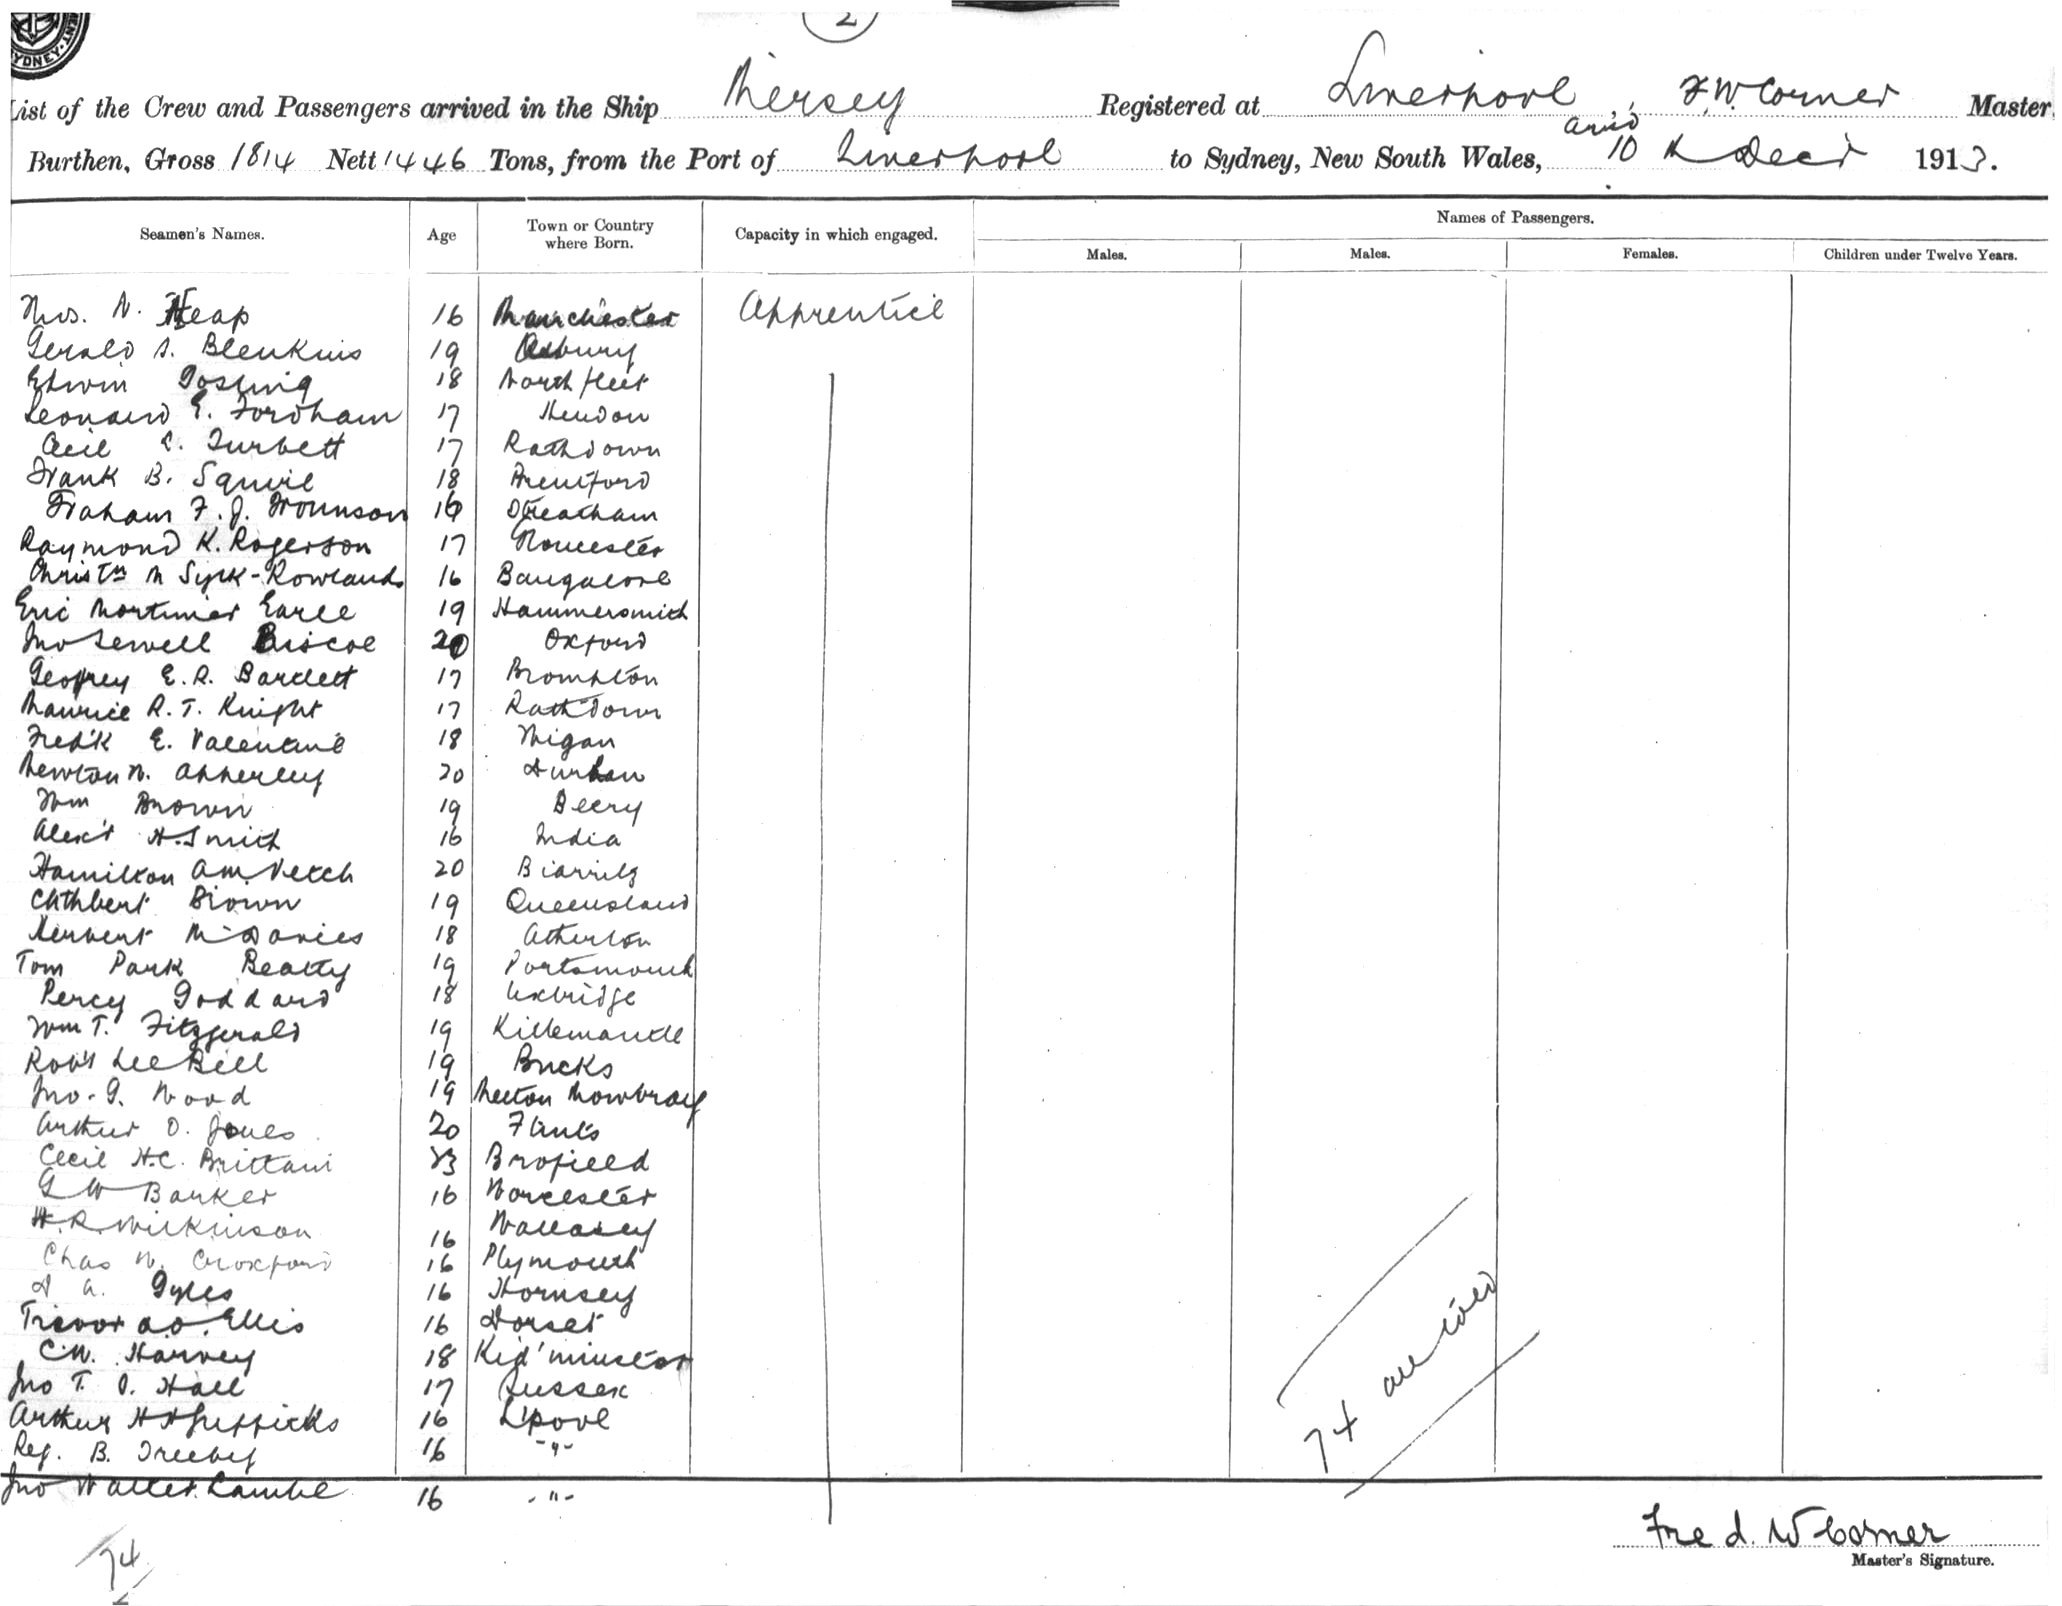 SYDNEY
2
List of the Crew and Passengers arrived in the Ship Mersey Registered at Liverpool, F. W. Corner Master
arrd
Burthen, Gross 1814 Nett 1446 Tons, from the Port of Liverpool to Sydney, New South Wales, 10th Decr 1913.
Names of Passengers.
Seamen's Names. Age Town or Country where Born. Capacity in which engaged. Males. Males. Females. Children under Twelve Years.
Heap 16 Manchester Apprentice
Gerald S. Blenkins 19
Edwin Gosling 18 Northfleet
Leonard E. Fordham 17 Hendon
Cecil C. Turbett 17 Rathdown
Frank B. Squire 18 Brentford
F. J. 16 Streatham
Raymond K. Rogerson 17 Gloucester
Christr M Syck-Rowlands 16 Bangalore
Eric Mortimer Earle 19 Hammersmith
Jno Sewell Biscoe 20 Oxford
Geofrey E. R. Bartlett 17 Brompton
Maurice R. T. Knight 17 Rathdown
Fred'k E. Valentine 18 Wigan
Newton W. Apperley 20 Durham
Wm Brown 19
Alex'r H. Smith 16 India
Hamilton A M. Vetch 20 Biarritz
Cuthbert Brown 19 Queensland
Herbert M Davies 18 Atherton
Tom Park Beatty 19 Portsmouth
Percy Goddard 18 Uxbridge
Wm T. Fitzgerald 19
Rob't Lee Bell 19 Bucks
Jno. G. Wood 19 Melton Mowbray
Arthur O. Jones 20
Cecil H. C. Brittain 23
G W Barker 16 Worcester
H. R. Wilkinson 16 Wallasey
Chas W. Croxford 16 Plymouth
A. Gyles 16 Hornsey
Trevor A. O. Ellis 16 Dorset
C. W. Harvey 18 Kid'minster
Jno T. O. Hall 17 Sussex
Arthur H 16 L'pool
Reg. B. Treeby 16 -"-
Jno Walter Lambe 16 -"-
74 all told
74
Fred. W Corner
Master's Signature.